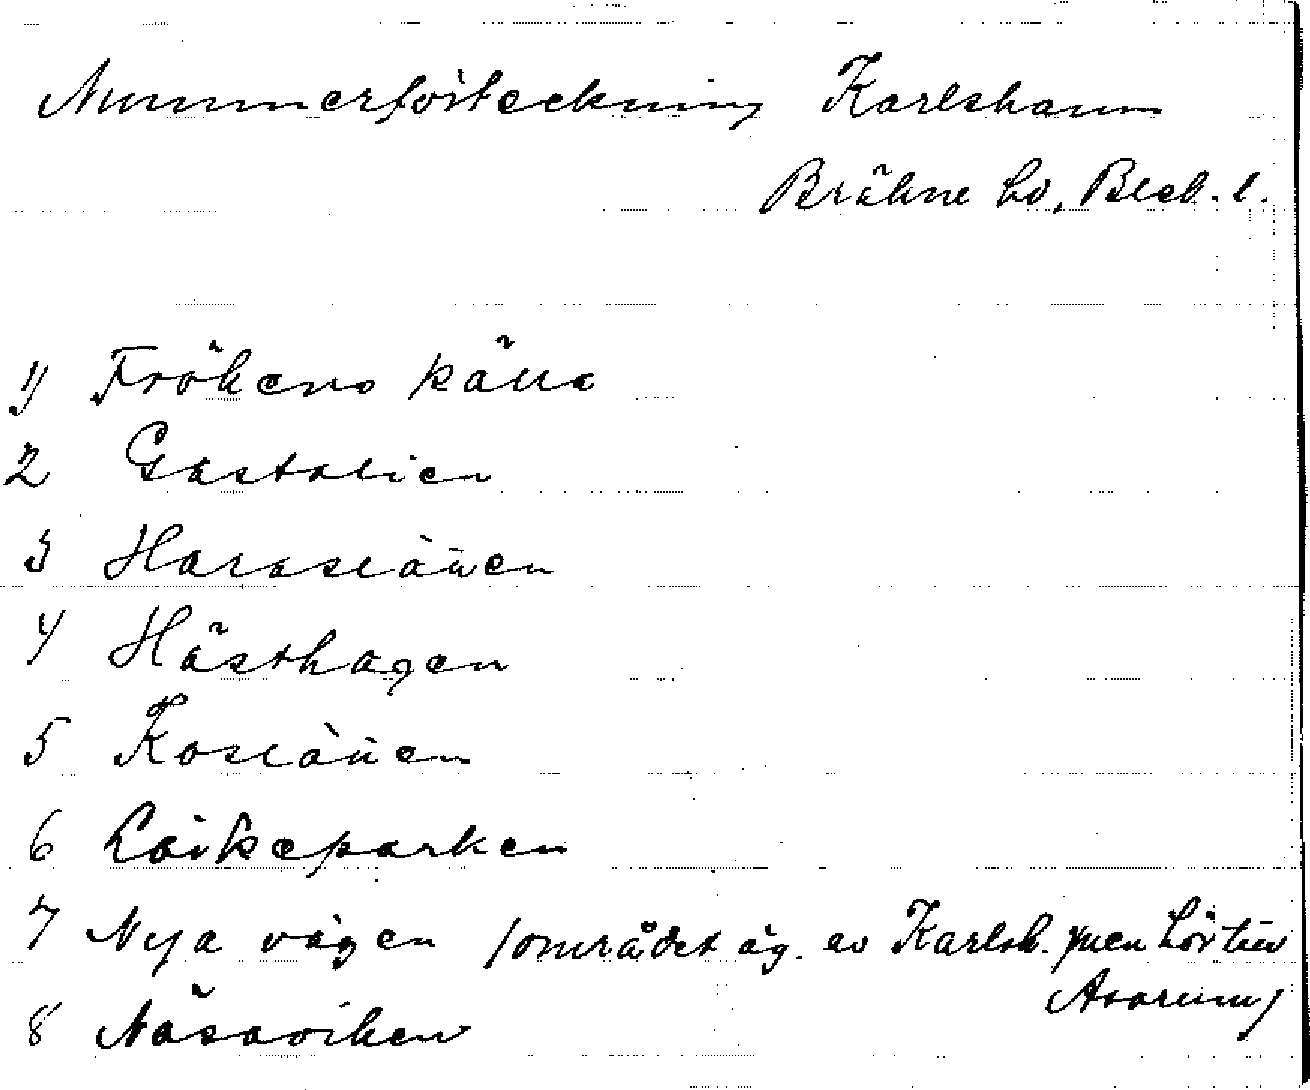 Nummerförteckning Karlshamn
Bräkne hd, Blek. l.
1) Frökens källa
2 Gustavien
3 Haraslätten
4 Hästhagen
5 Koslätten
6 Lärkeparken
7 Nya vägen (området äg. av Karlsh. men hör till
Asarum)
8 Näsaviken